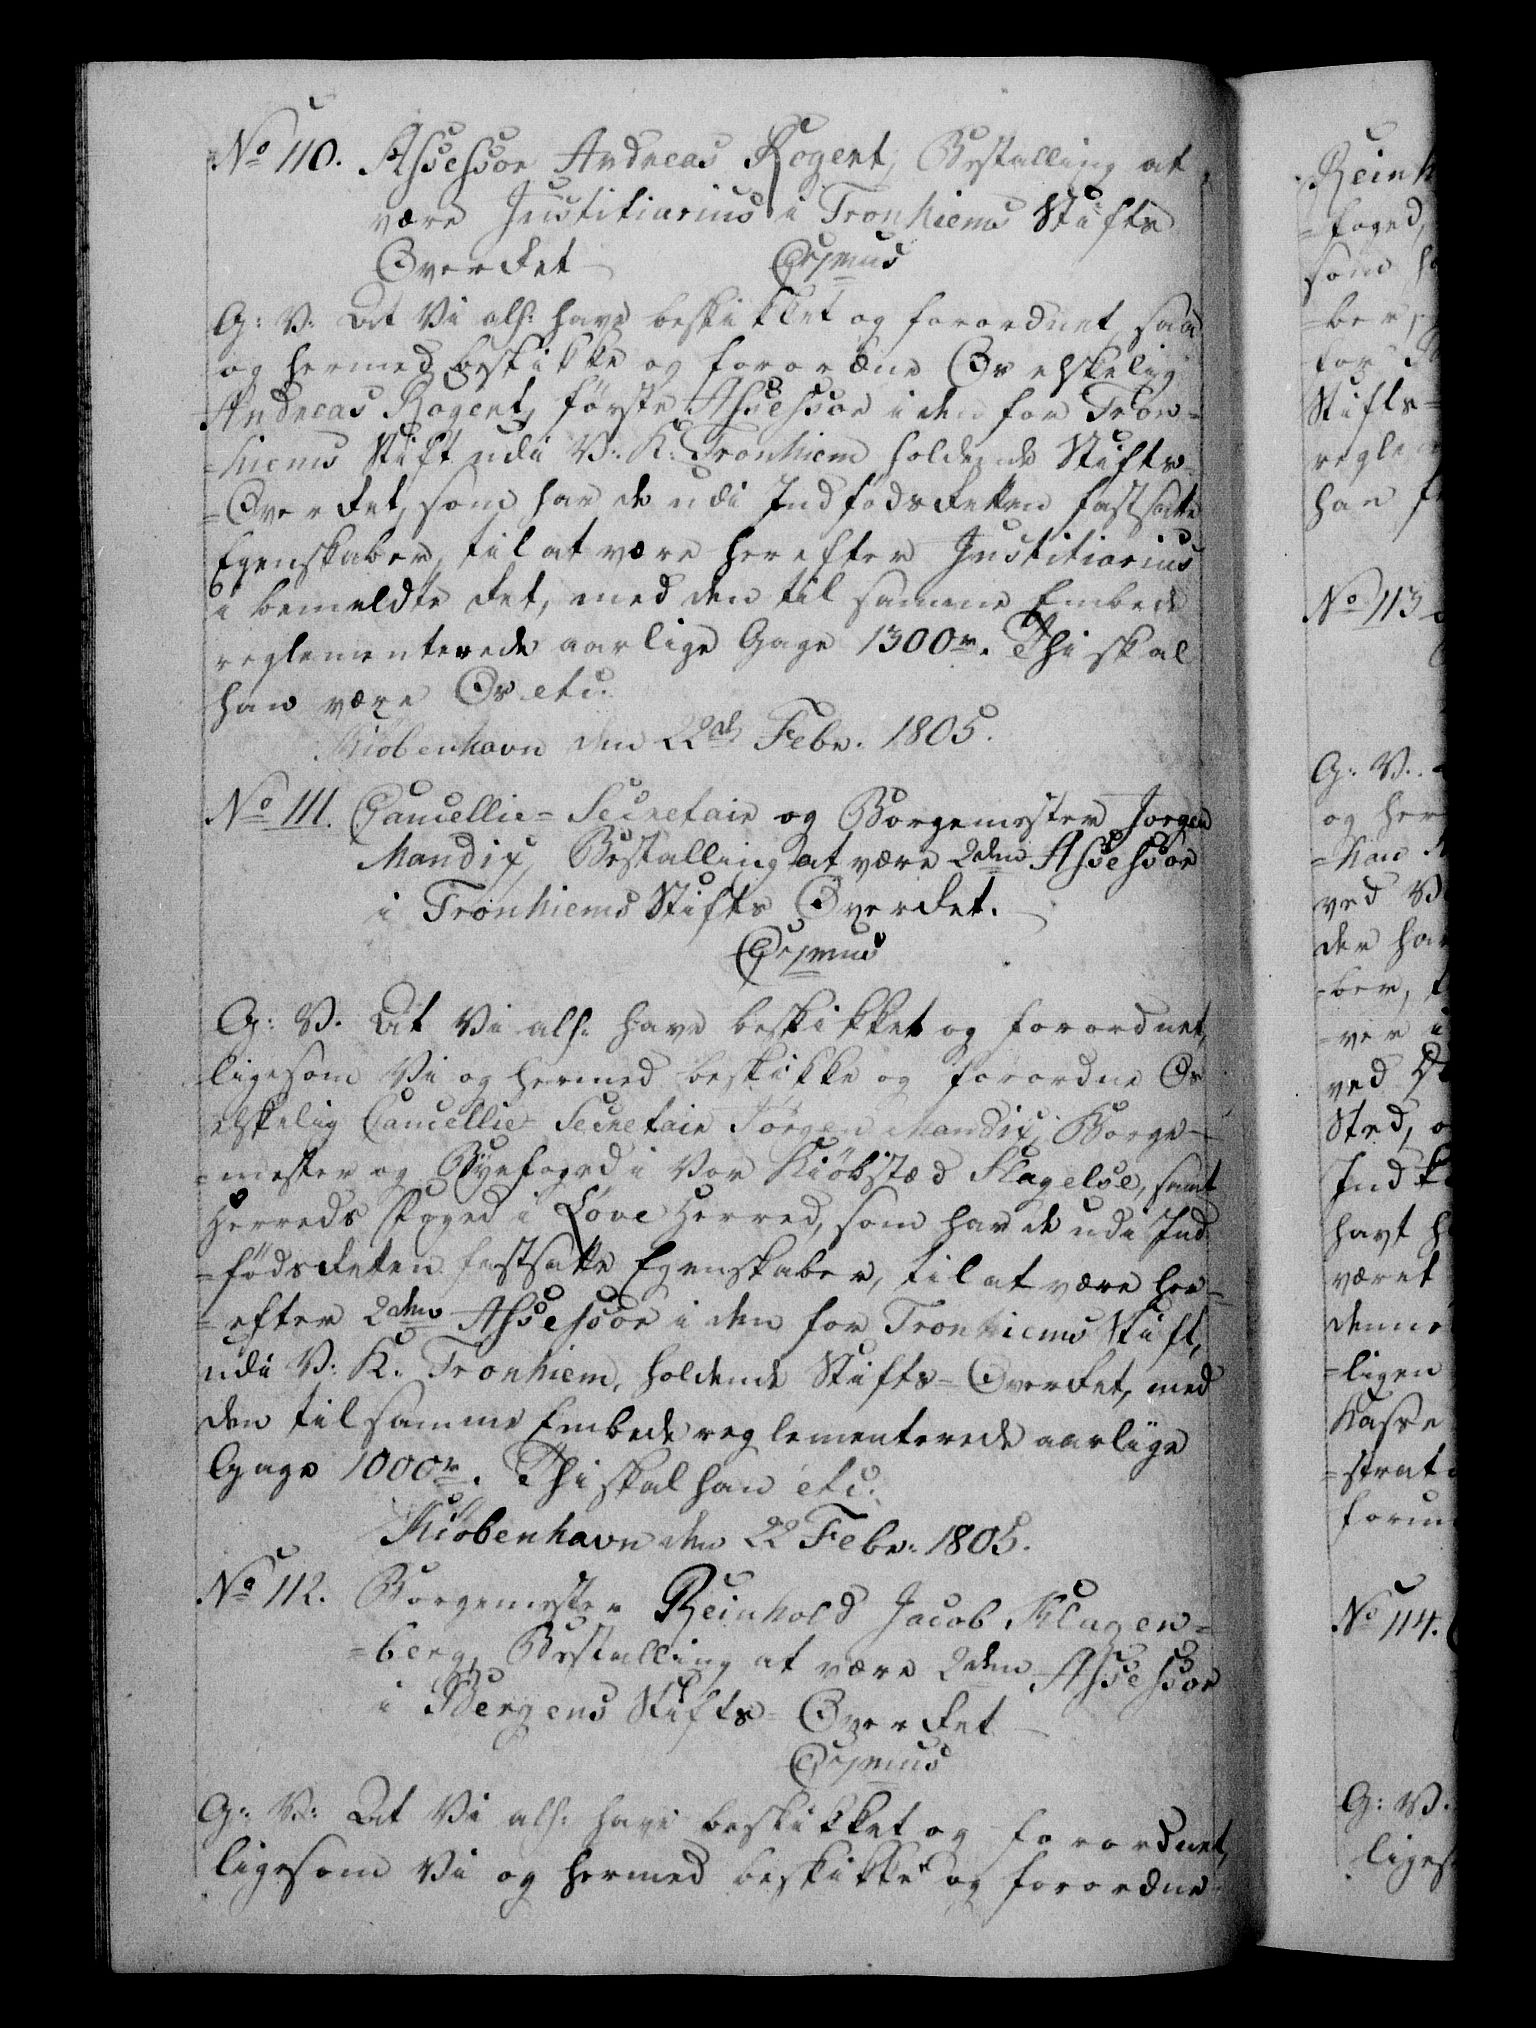 No 110. Assessor Andreas Rogert, Bestalling at
være Justitiarius i Tronhiems Stifts
Overret Qvjmus
G: V: At Vi alh: have beskikket og forordnet, saa
og hermed beskikke og forordne Os elskelig
Andreas Rogert, første Assessor i den for Tron-
=hiems Stift udi V: K: Tronhiem holdende Stifts-
=Overret, som har de udi Indfødsretten fastsatte
Egenskaber, til at være herefter Justitiarius
i bemeldte Ret, med den til samme Embede
reglementerede aarlige Gage 1300 r. Thi skal
han være Os etc:
Kiøbenhavn den 22d Febr: 1805.
No 111. Cancellie-Secretair og Borgemester Jørgen
Mandix, Bestalling at være 2den Assessor
i Tronhiems Stifts Overret.
Qvjmus
G: V. At Vi alh: have beskikket og forordnet,
ligesom Vi og hermed beskikke og forordne Os
elskelig Cancellie-Secretair Jørgen Mandix, Borge-
=mester og Byefoged i Vor Kiøbstæd Slagelse, samt
Herreds Foged i Løve Herred, som har de udi Ind
=fødsretten festsatte Egenskaber, til at være her-
=efter 2den Assessor i den for Tronhiems Stift,
udi V: K: Tronhiem, holdende Stifts-Overret, med
den til samme Embede reglementerede aarlige
Gage 1000 r. Thi skal han etc:
Kiøbenhavn den 22 Febr: 1805.
No 112. Borgemester Reinhold Jacob Klagen-
=berg, Bestalling at være 2den Assessor
i Bergens Stifts-Overret
Qvjmus
G: V: At Vi alh: have beskikket og forordnet,
ligesom Vi og hermed beskikke og forordne
Reinh
=foged,
som ha
=ber,
for
Stifts-
regle
han
No 113
G: V.
og her
=kan
ved V
der har
=ber,
=ver i
ved
Sted, o
Ind
havt h
været
denne
=ligen
Kasse
=strat
forun
No 114.
G: V.
liges